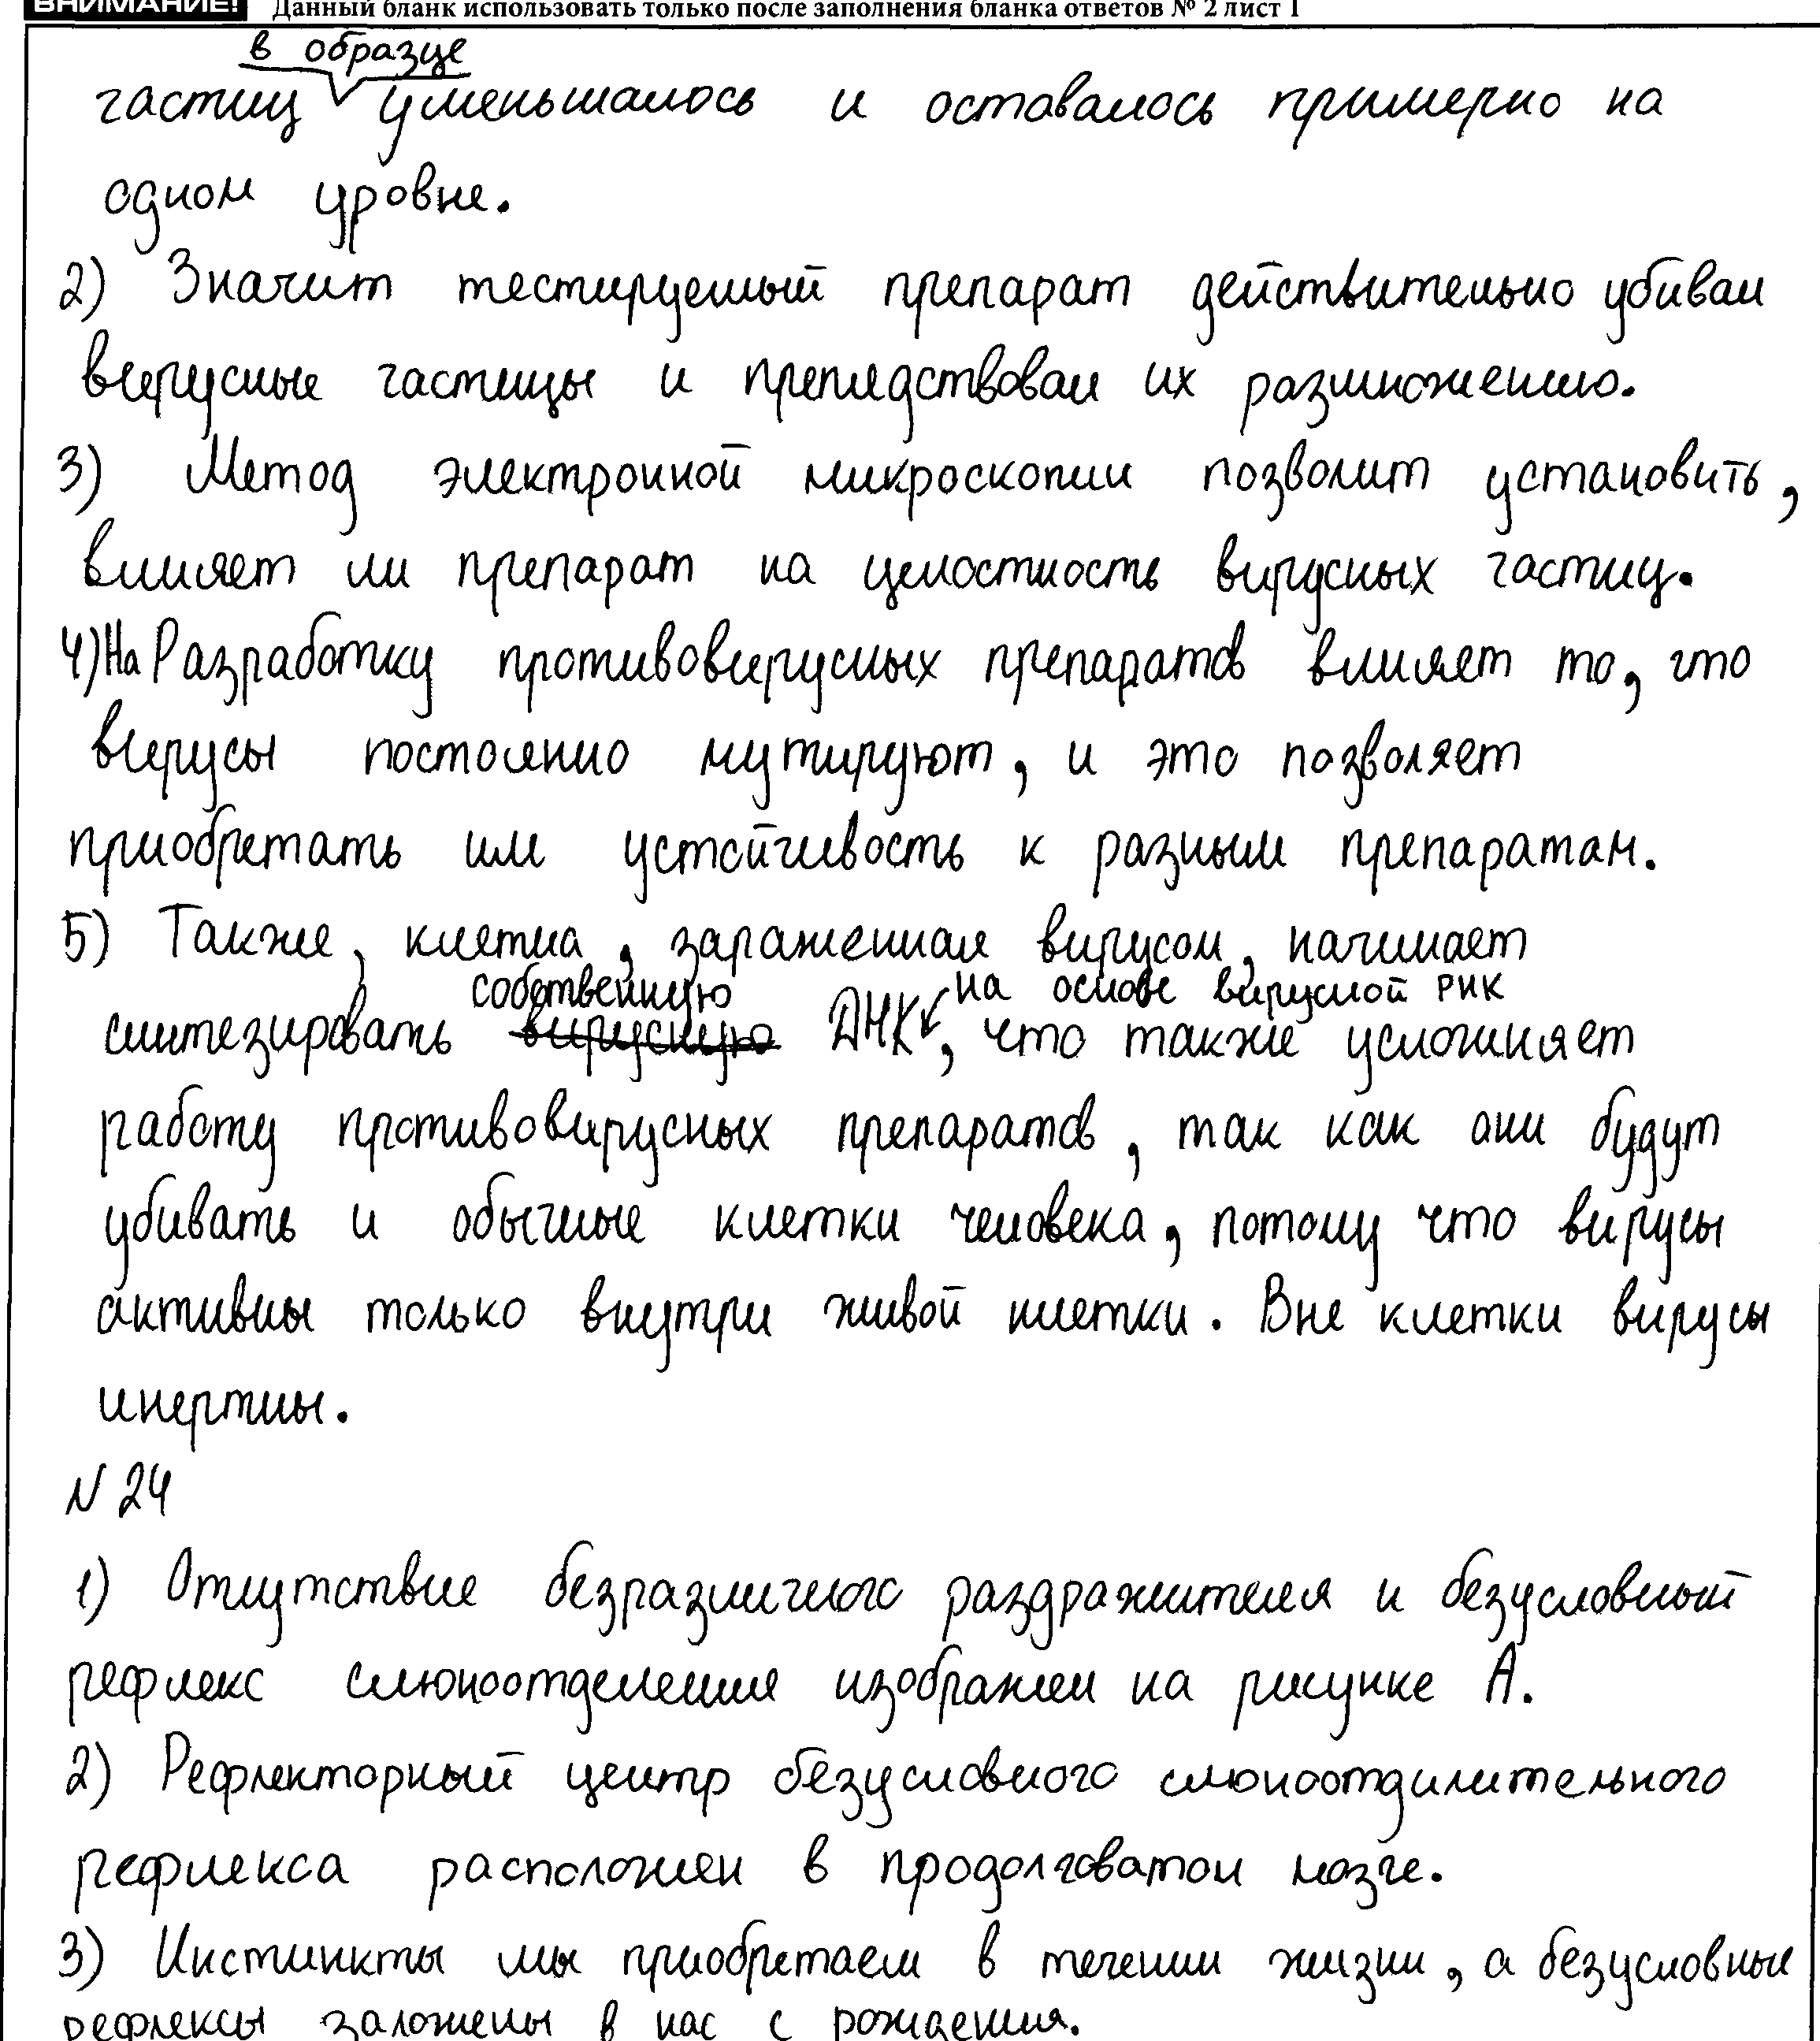 ВНИМАНИЕ! Данный бланк использовать только после заполнения бланка ответов № 2 лист 1
в образце
частиц уменьшалось и оставалось примерно на
одном уровне.
2) Значит тестируемый препарат действительно убивал
вирусные частицы и препядствовал их размножению.
3) Метод электронной микроскопии позволит установить,
влияет ли препарат на целостность вирусных частиц.
4) На Разработку противовирусных препаратов влияет то, что
вирусы постоянно мутируют, и это позволяет
приобретать им устойчивость к разным препаратам.
5) Также, клетка, зараженная вирусом, начинает
собственную на основе вирусной РНК
синтезировать вирусную ДНК, что также усложняет
работу противовирусных препаратов, так как они будут
убивать и обычные клетки человека, потому что вирусы
активны только внутри живой клетки. Вне клетки вирусы
инертны.
N 24
1) Отсутствие безразличного раздражителя и безусловный
рефлекс слюноотделения изображен на рисунке А.
2) Рефлекторный центр безусловного слюноотдилительного
рефлекса расположен в продолговатом мозге.
3) Инстинкты мы приобретаем в течении жизни, а безусловные
рефлексы заложены в нас с рождения.